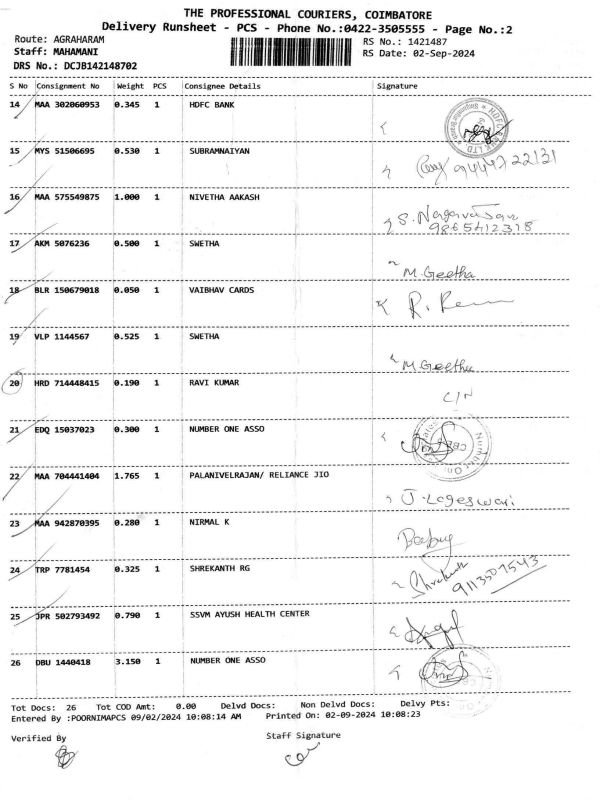 THE PROFESSIONAL COURIERS, COIMBATORE
Delivery Runsheet - PCS - Phone No.:0422-3505555 - Page No.:2
Route: AGRAHARAM RS No.: 1421487
Staff: MAHAMANI RS Date: 02-Sep-2024
DRS No.: DCJB142148702
S No Consignment No Weight PCS Consignee Details Signature
14 MAA 302060953 0.345 1 HDFC BANK
15 MYS 51506695 0.530 1 SUBRAMNAIYAN
9444722131
16 MAA 575549875 1.000 1 NIVETHA AAKASH
S. Nagarajan
9865412318
17 AKM 5076236 0.500 1 SWETHA
M. Geetha
18 BLR 150679018 0.050 1 VAIBHAV CARDS
R. 
19 VLP 1144567 0.525 1 SWETHA
M. Geetha
20 HRD 714448415 0.190 1 RAVI KUMAR
C/N
21 EDQ 15037023 0.300 1 NUMBER ONE ASSO
22 MAA 704441404 1.765 1 PALANIVELRAJAN/ RELIANCE JIO
J. Logeswari
23 MAA 942870395 0.280 1 NIRMAL K
24 TRP 7781454 0.325 1 SHREKANTH RG
Shrekanth 9113507543
25 JPR 502793492 0.790 1 SSVM AYUSH HEALTH CENTER
26 DBU 1440418 3.150 1 NUMBER ONE ASSO
Tot Docs: 26 Tot COD Amt: 0.00 Delvd Docs: Non Delvd Docs: Delvy Pts:
Entered By :POORNIMAPCS 09/02/2024 10:08:14 AM Printed On: 02-09-2024 10:08:23
Verified By Staff Signature